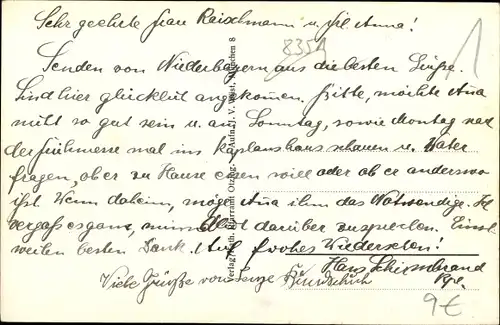 Sehr geehrte Frau Raischmann u. Frl. Anna!
8351
Senden von Niederbayern aus die besten Grüße.
Sind hier glücklich angekommen. Bitte, möchte Anna
mitt so gut sein u. am Sonntag, sowie Montag nach
der Frühmesse mal ins Kaplanshaus schauen u. Vater
fragen, ob er zu Hause essen will oder ob er anderswo
ißt. Wenn daheim, möge Anna ihm das Notwendige. Ich
vergaß es ganz, mit darüber zu sprechen. Einst-
weilen besten Dank. Auf frohes Wiedersehen!
Hans
Viele Grüße von
Verlag Kath. Pfarramt München 8
9€